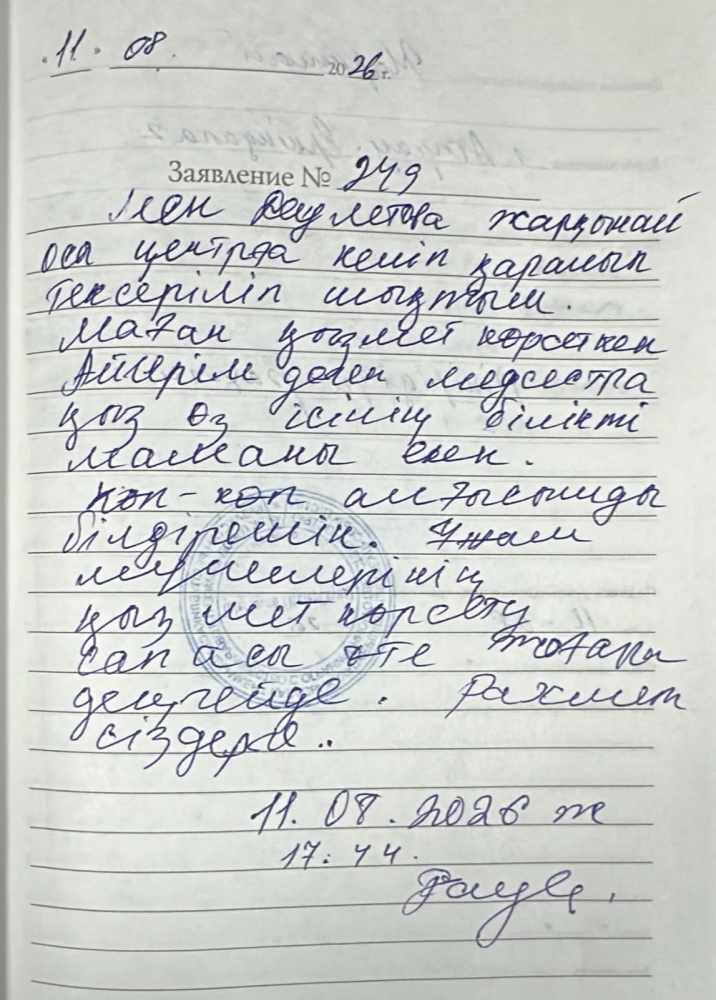 11. 08. 2026 г.
Заявление № 249
Мен Даулетова Жарқынай
осы центрда келіп қаралып
тексеріліп шықтым.
Маған қызмет көрсеткен
Айгерім деген медсестра
қыз өз ісінің білікті
маманы екен.
Көп-көп алғысымды
білдіремін. Ұжым
мүшелерінің
қызмет көрсету
сапасы өте жоғары
деңгейде. Рахмет
сіздерге..
11.08.2026 ж
17:44.